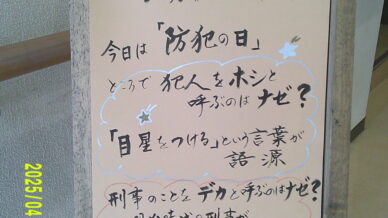 今日は「防犯の日」
ところで 犯人をホシと
呼ぶのは ナゼ?
「目星をつける」という言葉が
語源
刑事のことをデカと呼ぶのはナゼ?
2025/04